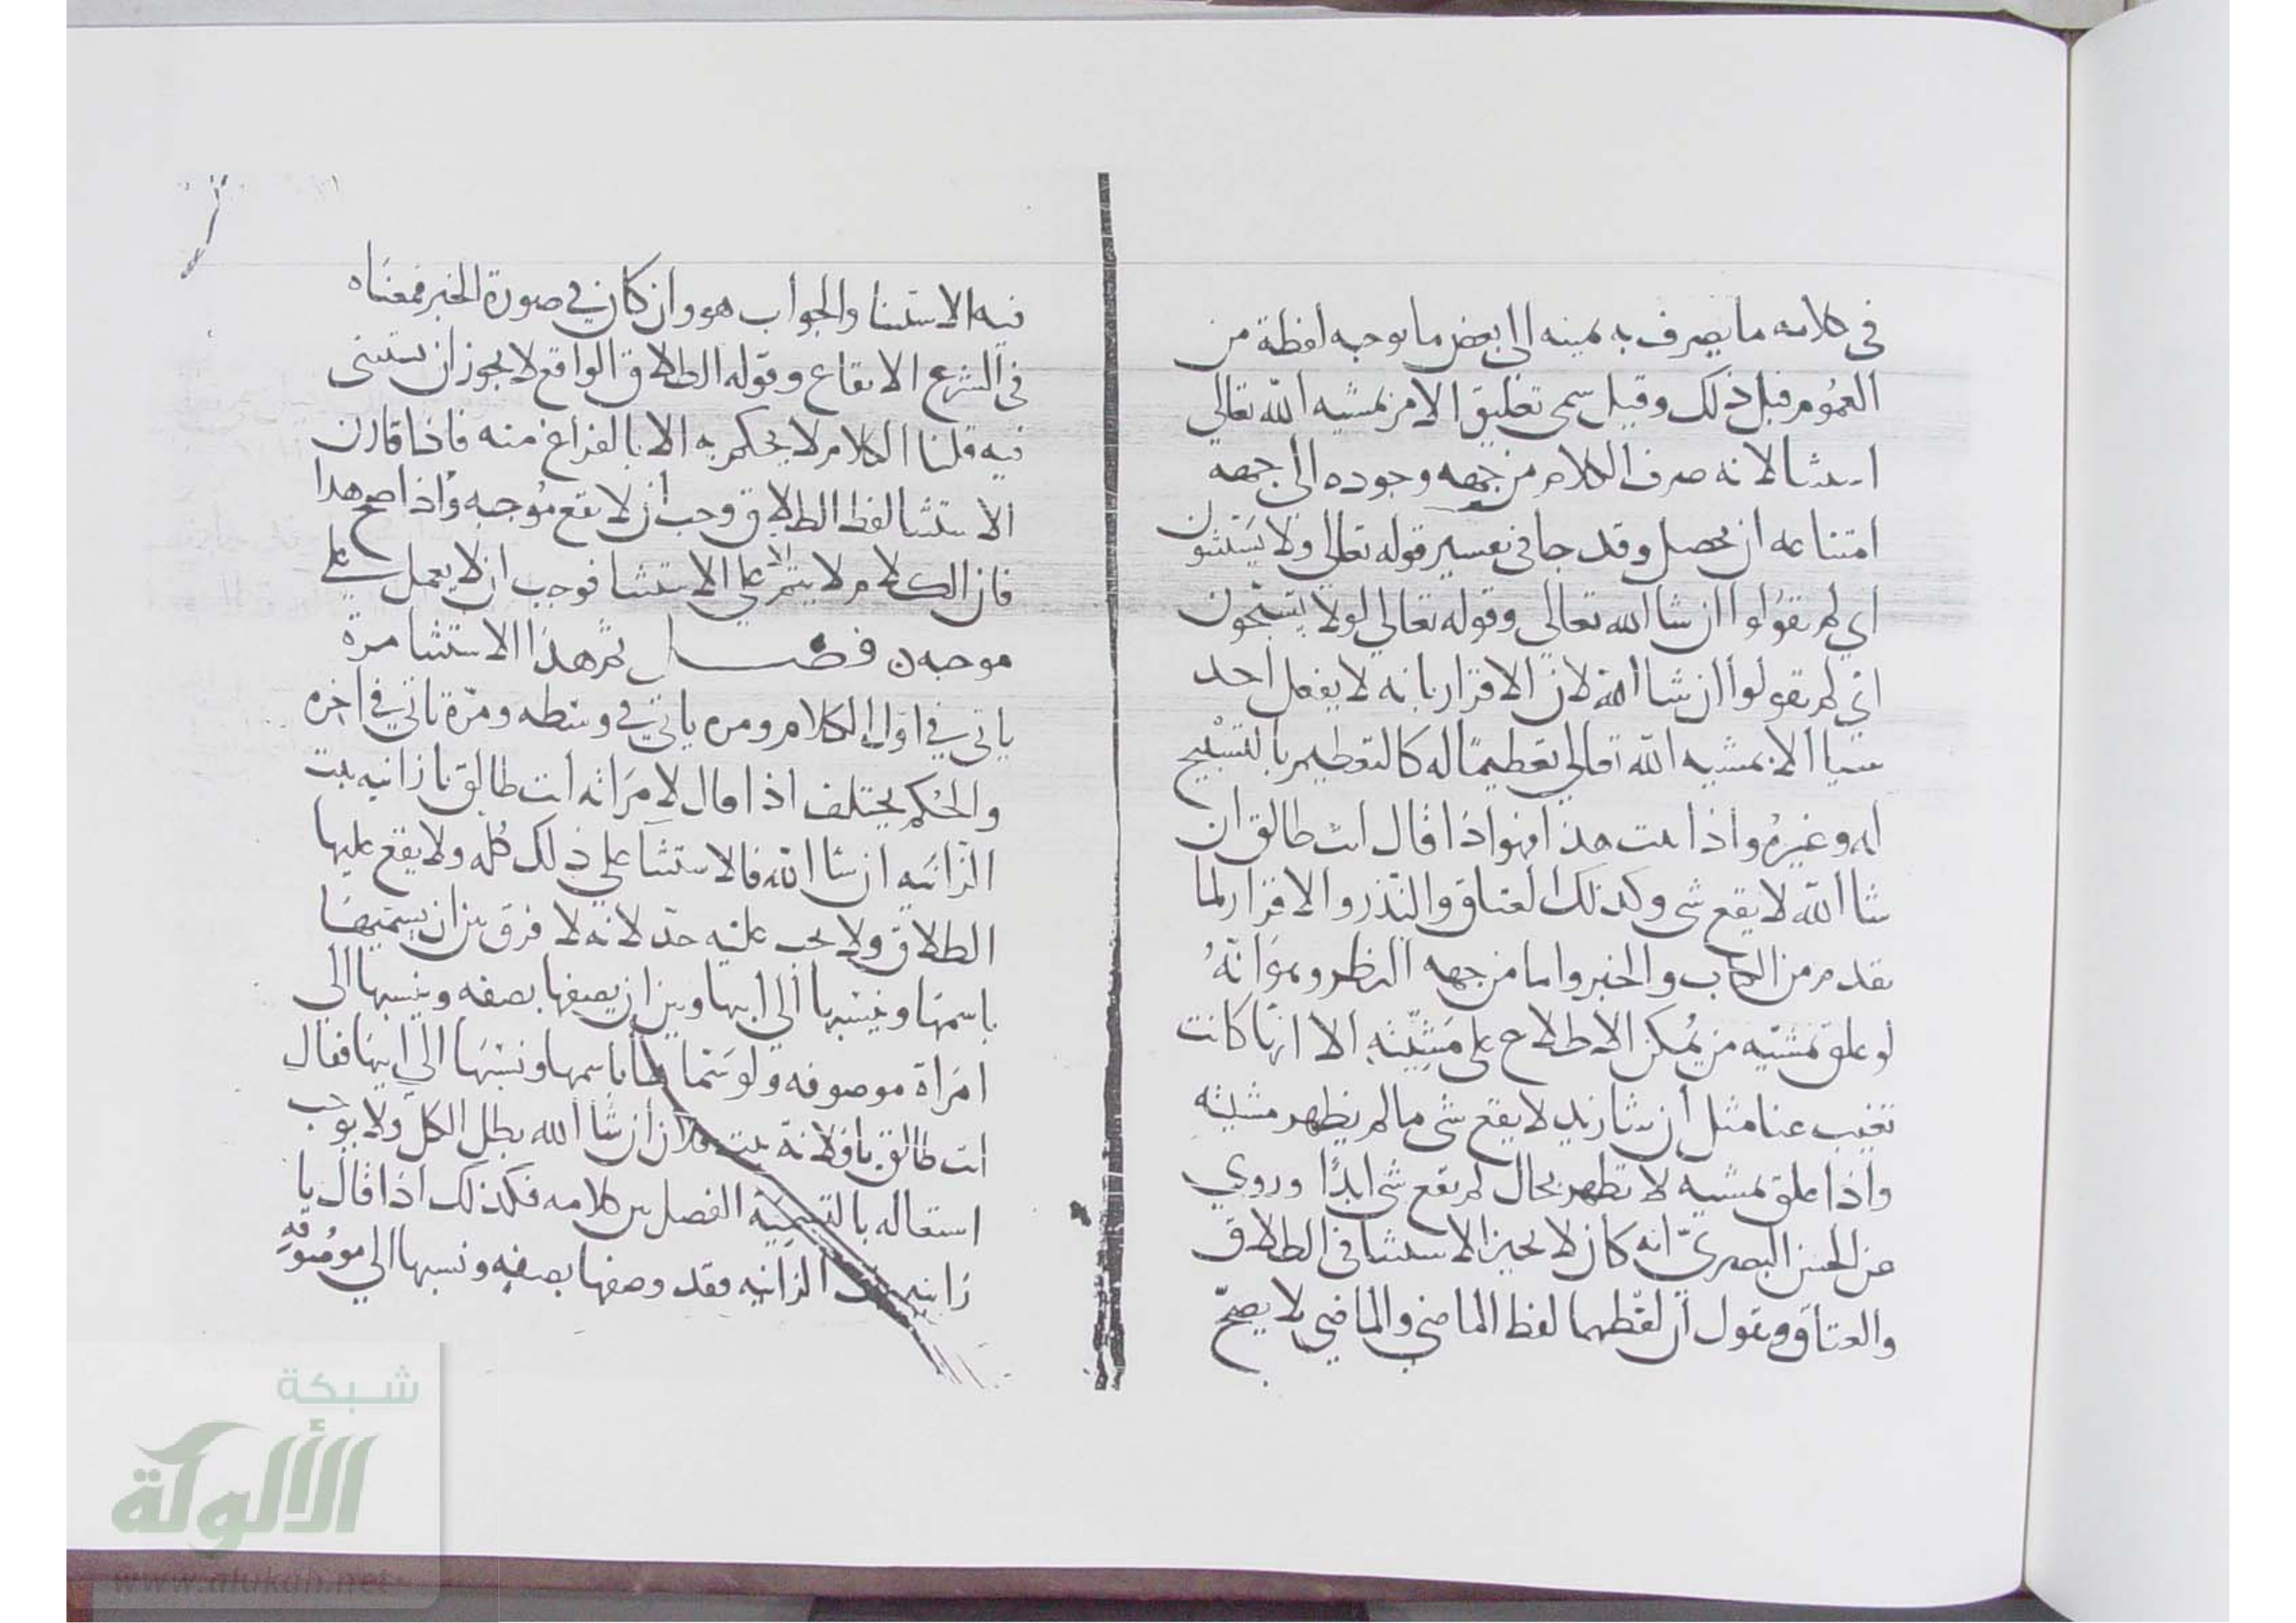 في كلامه ما يصرف به يمينه الى بعض ما يوجبه لفظة من
العموم قبل ذلك وقيل سمى تعليق الامر بمشيه الله تعالي
استثنا لانه صرف الكلام من جهه وجوده الى جهه
امتناعه ان يحصل وقد جا في تفسير قوله تعالي ولا يستثنون
اي لم يقولوا ان شا الله تعالي وقوله تعالي لولا تسبحون
اي لم يقولوا ان شا الله لان الاقرار بانه لا يفعل احد
شيا الا بمشيه الله تعالي تعظيما له كالتعظيم بالتسبيح
له وغيره واذا ثبت هذا فهو اذا قال انت طالق ان
شا الله لا يقع شي وكذلك العتاق والنذر والاقرار لما
تقدم من الكتاب والخبر واما من جهه النظر وهو انه
لو علق بمشيه من يمكن الاطلاع على مشيته الا انها كانت
تغيب عنا مثل ان شا زيد لا يقع شي ما لم يظهر مشيته
واذا علق بمشيه لا تظهر بحال لم يقع شي ابدا وروي
عن الحسن البصري انه كان لا يجيز الاستثنا في الطلاق
والعتاق ويقول ان لفظهما لفظ الماضي والماضي لا يصح
فيه الاستثنا والجواب هو وان كان في صورة الخبر فمعناه
في الشرع الايقاع وقوله الطلاق الواقع لا يجوز ان يستثنى
فيه قلنا الكلام لا يحكم به الا بالفراغ منه فاذا قارن
الاستثنا لفظ الطلاق وجب ان لا يقع موجبه واذا صح هذا
فان الكلام لا يتم الا على الاستثنا فوجب ان لا يعمل على
موجبه فصل ثم هذا الاستثنا مرة
ياتي في اول الكلام ومره ياتي في وسطه ومرة تاتي في اخره
والحكم يختلف اذا قال لامراته انت طالق يا زانيه بنت
الزانيه ان شا الله فالاستثنا على ذلك كله ولا يقع عليها
الطلاق ولا يجب عليه حد لانه لا فرق بين ان يسميها
باسمها وينسبها الى ابيها وبين ان يصفها بصفه وينسبها الى
امراة موصوفه ولو سماها باسمها ونسبها الي ابيها فقال
انت طالق يا فلانة بنت فلان ان شا الله بطل الكل ولا يوجب
استعاله بالتسمية الفصل بين كلامه فكذلك اذا قال يا
زانيه بنت الزانيه فقد وصفها بصفه ونسبها الي موصوفه
شبكة
الألوكة
www.alukah.net